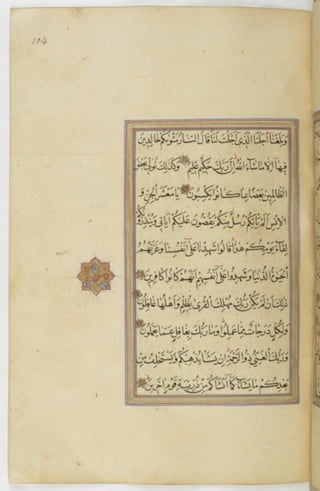 104
وَبَلَغْنَا أَجَلَنَا الَّذِي أَجَّلْتَ لَنَا قَالَ النَّارُ مَثْوَاكُمْ خَالِدِينَ
فِيهَا إِلَّا مَا شَاءَ اللَّهُ إِنَّ رَبَّكَ حَكِيمٌ عَلِيمٌ وَكَذَلِكَ نُوَلِّي بَعْضَ
الظَّالِمِينَ بَعْضًا بِمَا كَانُوا يَكْسِبُونَ يَا مَعْشَرَ الْجِنِّ وَ
الْإِنْسِ أَلَمْ يَأْتِكُمْ رُسُلٌ مِنْكُمْ يَقُصُّونَ عَلَيْكُمْ آيَاتِي وَيُنْذِرُونَكُمْ
لِقَاءَ يَوْمِكُمْ هَذَا قَالُوا شَهِدْنَا عَلَى أَنْفُسِنَا وَغَرَّتْهُمُ
الْحَيَوةُ الدُّنْيَا وَشَهِدُوا عَلَى أَنْفُسِهِمْ أَنَّهُمْ كَانُوا كَافِرِينَ
ذَلِكَ أَنْ لَمْ يَكُنْ رَبُّكَ مُهْلِكَ الْقُرَى بِظُلْمٍ وَأَهْلُهَا غَافِلُونَ
وَلِكُلٍّ دَرَجَاتٌ مِمَّا عَمِلُوا وَمَا رَبُّكَ بِغَافِلٍ عَمَّا يَعْمَلُونَ
وَرَبُّكَ الْغَنِيُّ ذُو الرَّحْمَةِ إِنْ يَشَأْ يُذْهِبْكُمْ وَيَسْتَخْلِفْ مِنْ
بَعْدِكُمْ مَا يَشَاءُ كَمَا أَنْشَأَكُمْ مِنْ ذُرِّيَّةِ قَوْمٍ آخَرِينَ